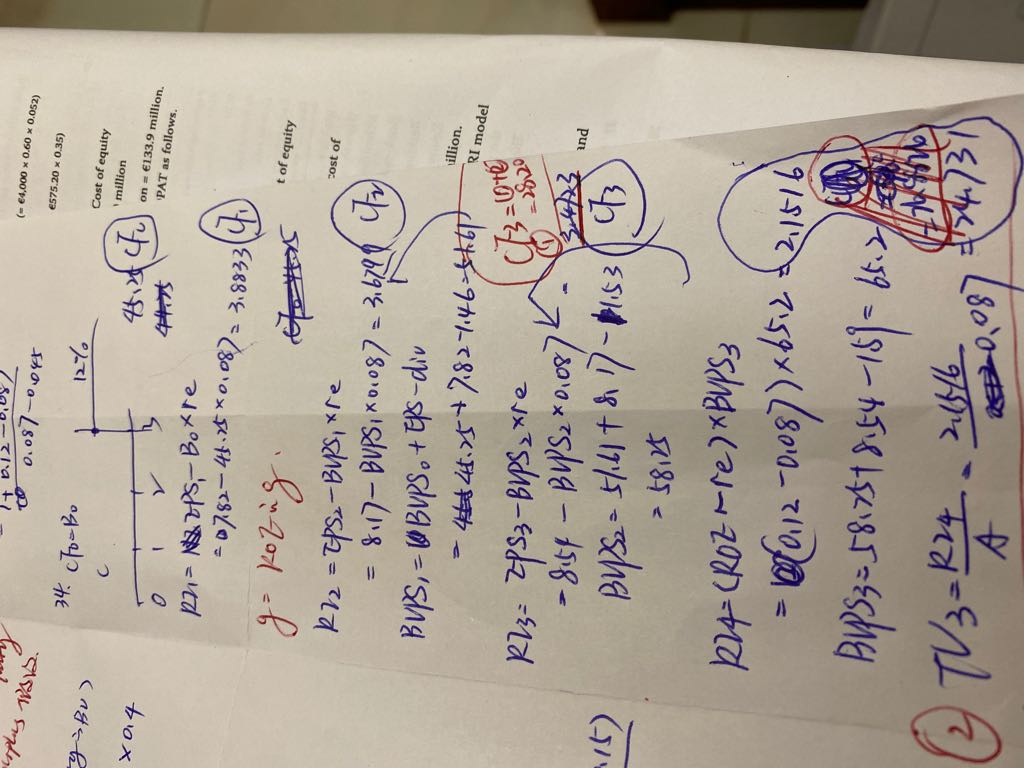 (= €4,000 × 0.60 × 0.052)
€575.20 × 0.35)
Cost of equity
million
on = €133.9 million.
PAT as follows.
t of equity
cost of
illion.
RI model
and
0.087-0.045
34. CF0=B0
C
12%
0 1 2 3
45.25 CF0
RI1 = EPS1-B0×re
=7.82-45.25×0.087=3.8833 CF1
g=ROE·ng.
RI2=EPS2-BVPS1×re
=8.17-BVPS1×0.087=3.6799 CF2
BVPS1=BVPS0+EPS-div
=45.25+7.82-1.46=51.61
RI3=EPS3-BVPS2×re
=8.54-BVPS2×0.087=
BVPS2=51.61+8.17-1.53
=58.25
CF3=①+②
=28.20
①
CF3
RI4=(ROE-re)×BVPS3
=(0.12-0.087)×65.2=2.1516
BVPS3=58.25+8.54-1.59=65.2
② TV3=RI4/A=2.1516/0.087=24.731
×0.4
.15)